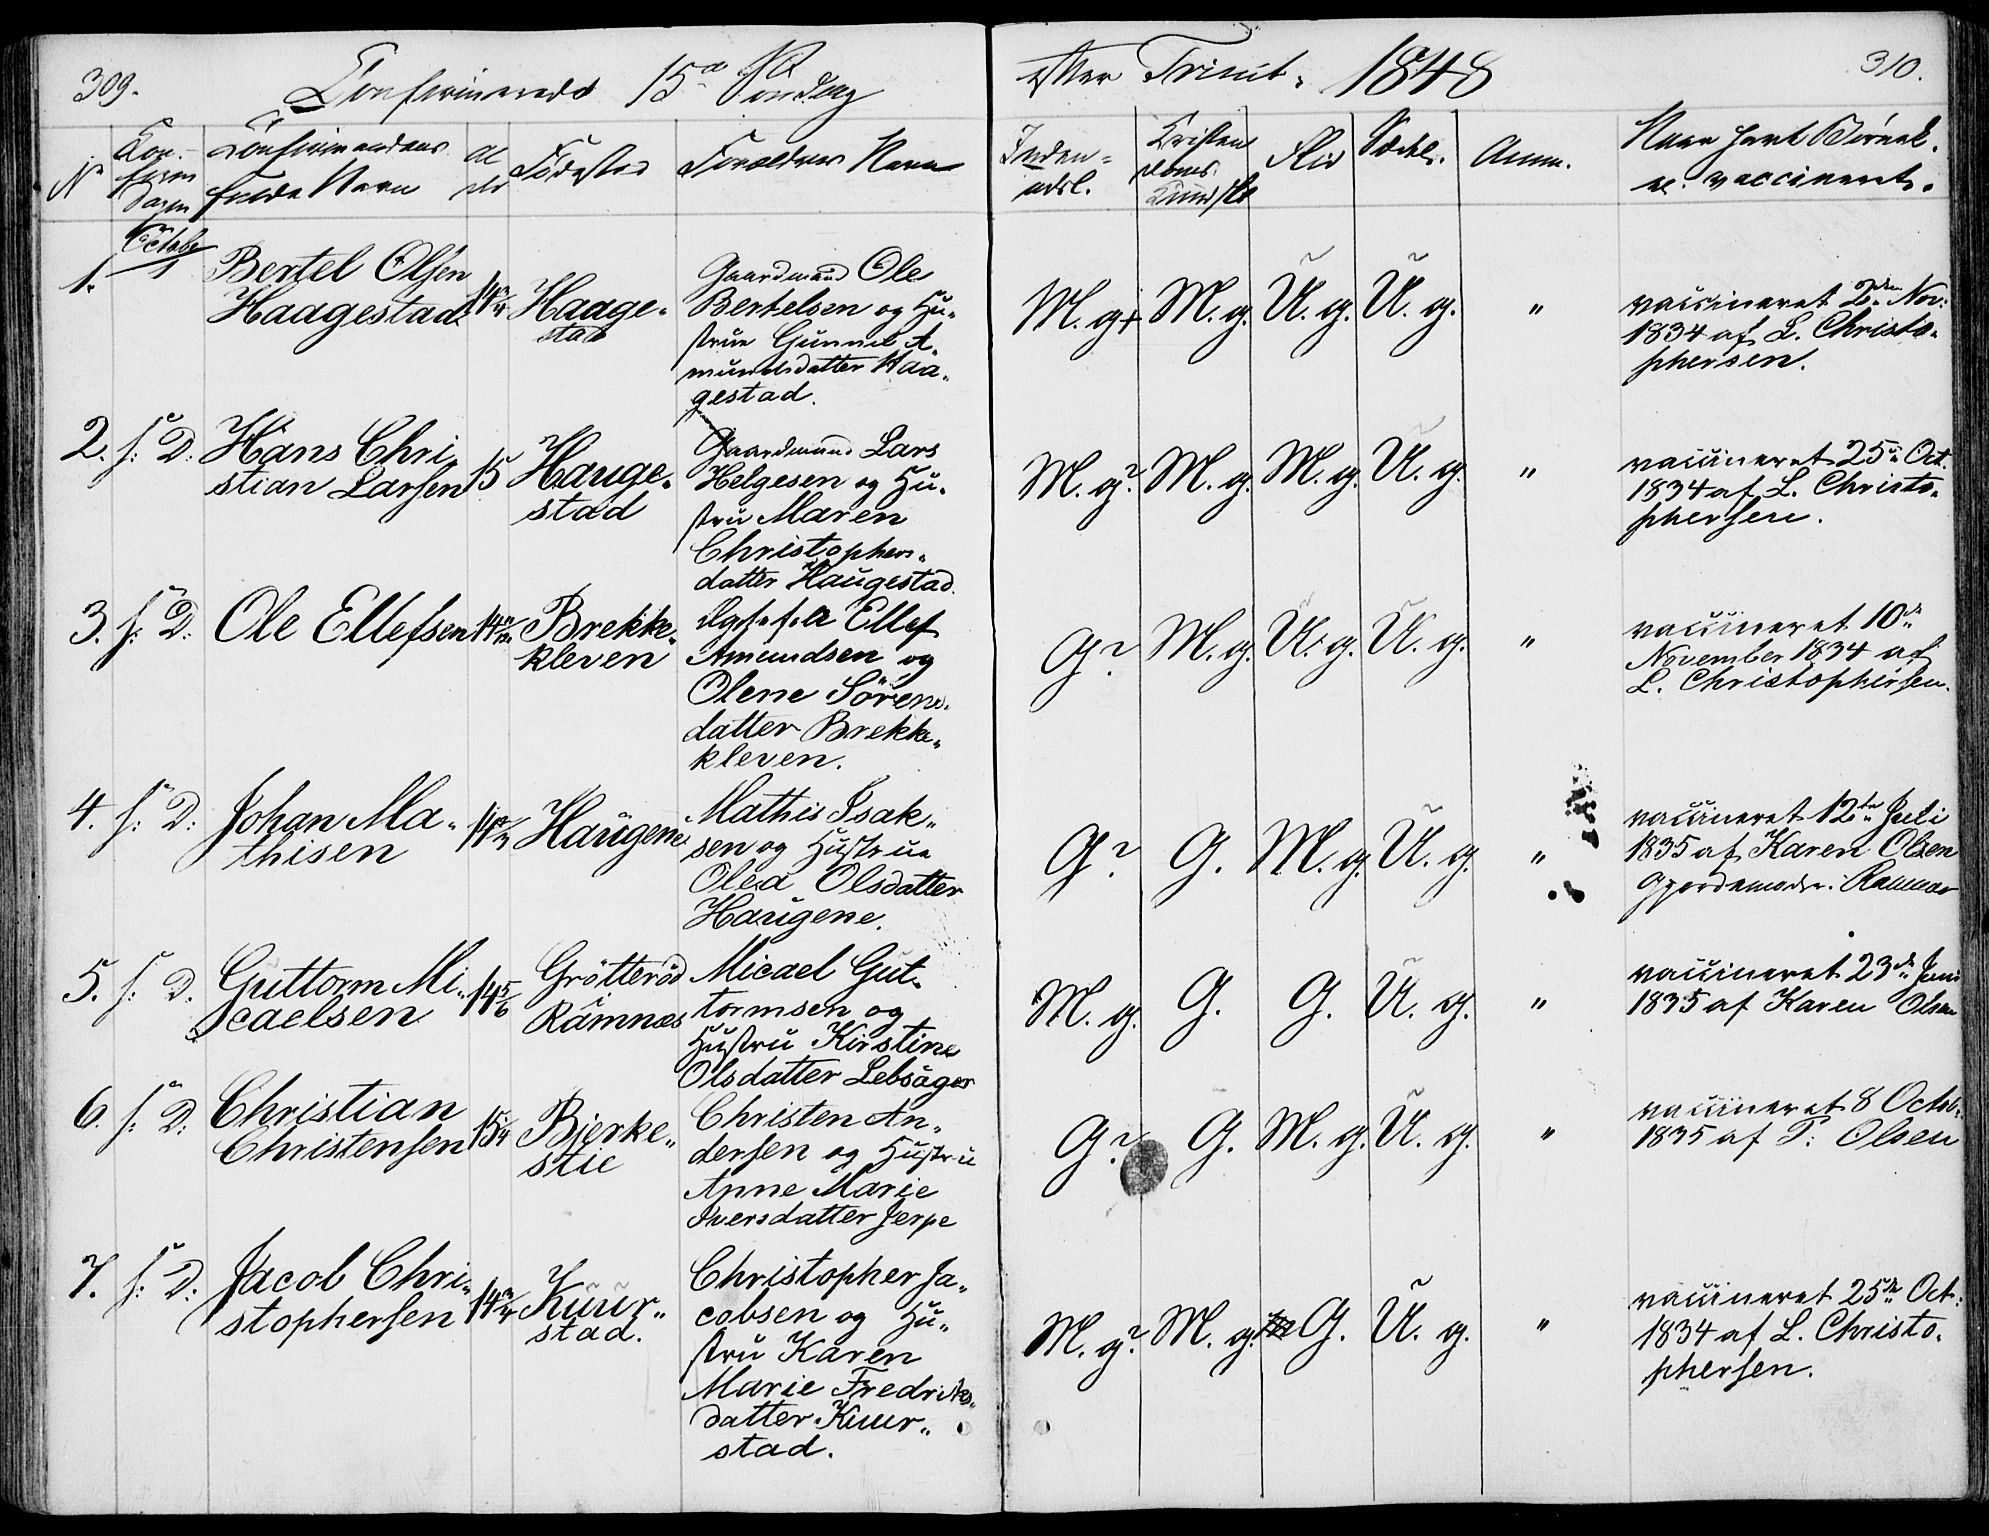 309.
Confirmerede 15de Søndag
efter Trinit. 1848
310.
No
Con-
firm
Dagen
Confirmandens
fulde Navn
Al
der
Fødested
Forældrenes Navn
Inden-
adsl.
Kristen
doms
Kundsk
Flid
Sædel.
Anm.
Naar samt Børnek.
er vaccineret.
1.
October
1
Bertel Olsen
Haagestad
Haage-
stad
Gaardmand Ole
Bertelsen og Hu-
strue Gunnel A-
mundsdatter Haa-
gestad.
M. g+
M. g.
U. g.
U. g.
"
vaccineret 2den Nov:
1834 af L. Christo-
phersen.
2.
s: D:
Hans Chri-
stian Larsen
15
Hauge-
stad
Gaardmand Lars
Helgesen og Hu-
stru Maren
Christophers-
datter Haugestad.
M. g?
M. g.
M. g.
U. g.
"
vaccineret 25de Oct.
1834 af L. Christo-
phersen.
3.
s: D:
Ole Ellefsen
Brekke-
kleven
Ellef
Amundsen og
Olene Sörens-
datter Brekke-
kleven.
G?
M. g.
U. g.
U. g.
"
vaccineret 10de
November 1834 af
L. Christophersen.
4.
s: D:
Johan Ma-
thisen
Haugene
Mathis Isak-
sen og Hustrue
Olea Olsdatter
Haugene.
G?
G.
M. g.
U. g.
"
vaccineret 12te Juli
1835 af Karen Olsen
Gjordemoder. Ramnæs
5.
s: D.
Guttorm Mi-
caelsen
14 5/6
Grötteröd
Ramnæs
Micael Gut-
tormsen og
Hustru Kirstine
Olsdatter Lebsager
M. g.
G.
G.
U. g.
"
vaccineret 23de Juni
1835 af Karen Olsen
6.
s: D:
Christian
Christensen
15 1/4
Bjerke-
stie
Christen An-
dersen og Hustru
Anne Marie
Iversdatter Jerpe
G?
G.
M. g.
U. g.
"
vaccineret 8 Octob:
1835 af T: Olsen
7.
s: D:
Jacob Chri-
stophersen
14 3/4
Kuur-
stad.
Christopher Ja-
cobsen og Hu-
stru Karen
Marie Fredriks-
datter Kuur-
stad.
M. g?
M. g.
G.
U. g.
"
vaccineret 25de Oct:
1834 af L. Christo-
phersen.